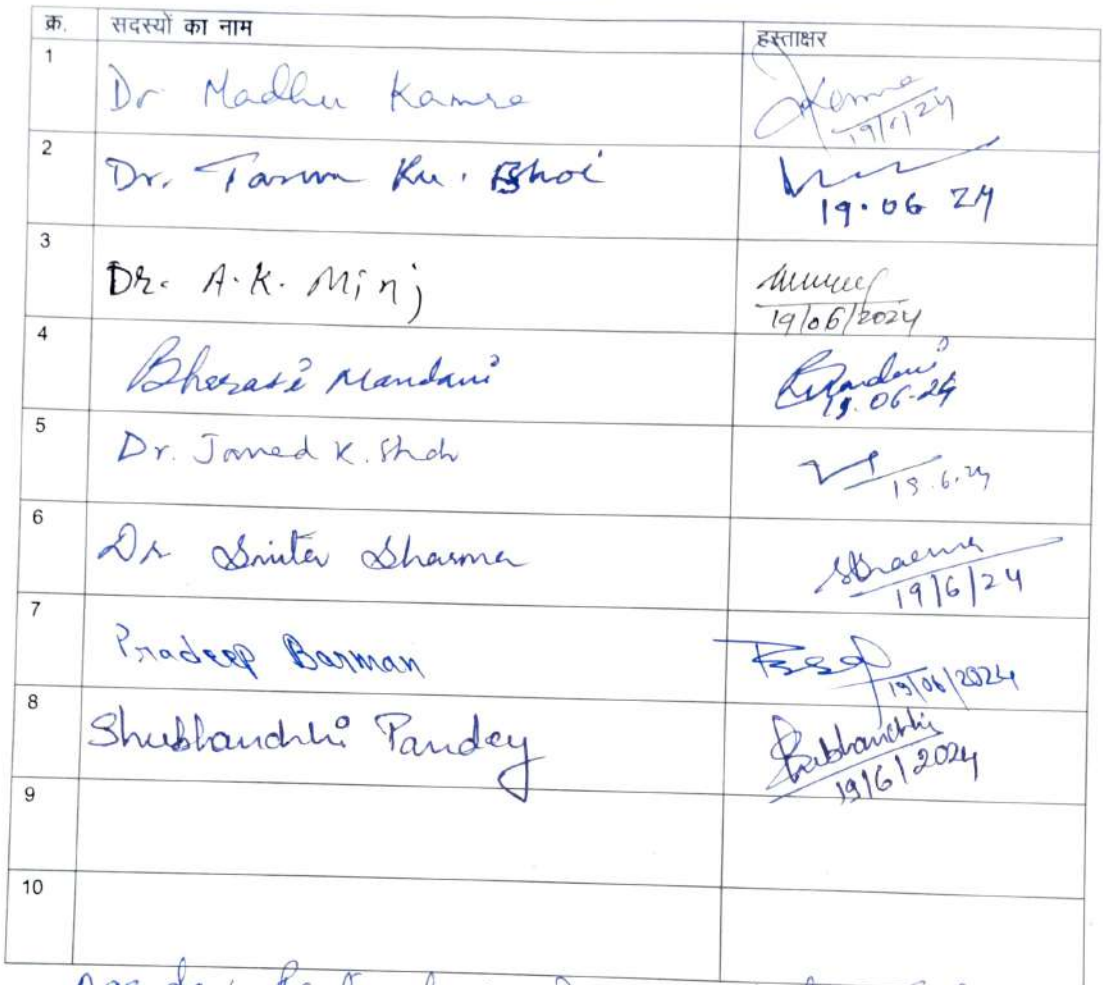 क्र. सदस्यों का नाम हस्ताक्षर
1 Dr Madhu Kamra Kamra 19/6/24
2 Dr. Tarun Ku. Bhoi 19.06 24
3 Dr. A.K. Minj 19/06/2024
4 Bharati Mandavi 19.06.24
5 Dr. K. Shah 19.6.24
6 Dr Smita Sharma Sharma 19/6/24
7 Pradeep Barman 19/06/2024
8 Shubhanchhi Pandey Shubhanchhi 19/6/2024
9
10